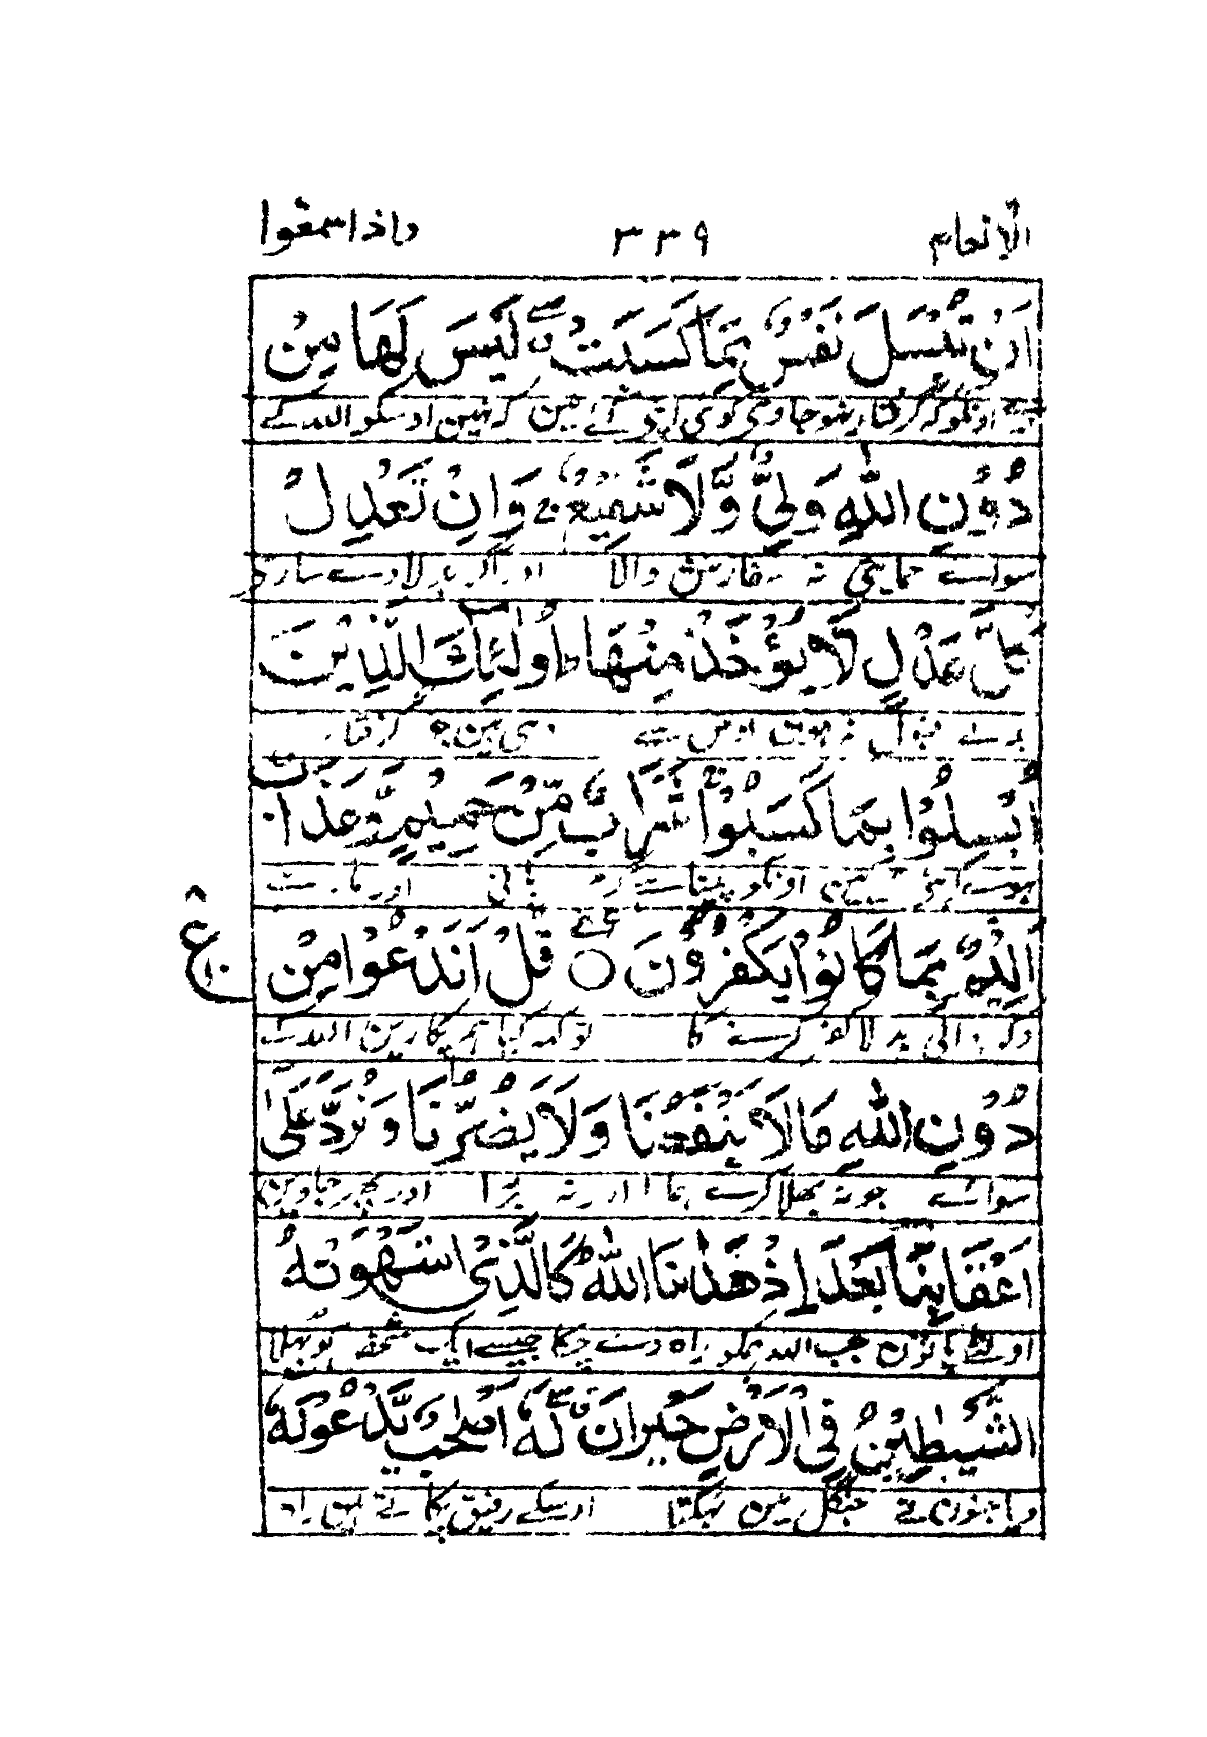 الانعام ٣٣٩ واذاسمعوا
اَنْ تُبْسَلَ نَفْسٌۢ بِمَا كَسَبَتْ لَيْسَ لَهَا مِنْ
اونکو کہ گرفتار ہو جاوی کوئی اپنی کئے مین کہ نہین اوسکو اللہ کے
دُوْنِ اللّٰهِ وَلِیٌّ وَّلَا شَفِيْعٌ ۚ وَاِنْ تَعْدِلْ
سوائے حمایتی نہ سفارش والا اور اگر بدلا دے سارے
كُلَّ عَدْلٍ لَّا يُؤْخَذْ مِنْهَا ؕ اُولٰٓئِكَ الَّذِيْنَ
بدلے قبول نہ ہون اوس سے وہی ہین جو گرفتار
اُبْسِلُوْا بِمَا كَسَبُوْا ۚ شَرَابٌ مِّنْ حَمِيْمٍ وَّعَذَابٌ
ہوے اپنے کیے مین اونکو پینا ہے گرم پانی اور مار ہے
اَلِيْمٌۢ بِمَا كَانُوْا يَكْفُرُوْنَ ○ قُلْ اَنَدْعُوْا مِنْ
دکہ والی بدلا کفر کرنے کا تو کہہ کیا ہم پکارین اللہ کے
دُوْنِ اللّٰهِ مَا لَا يَنْفَعُنَا وَلَا يَضُرُّنَا وَنُرَدُّ عَلٰٓى
سوائے جو نہ بھلا کرے ہمارا اور نہ بُرا اور پھر جاوین
اَعْقَابِنَا بَعْدَ اِذْ هَدٰىنَا اللّٰهُ كَالَّذِی اسْتَهْوَتْهُ
اولٹے پانوٗن جب اللہ ہمکو راہ دے چکا جیسے ایک شخص کو بہلا
الشَّيٰطِيْنُ فِی الْاَرْضِ حَيْرَانَ ۪ لَهٗۤ اَصْحٰبٌ يَّدْعُوْنَهٗۤ
دیا جنون نے جنگل مین بہکتا اوسکے رفیق پکارتے ہین راہ
ع